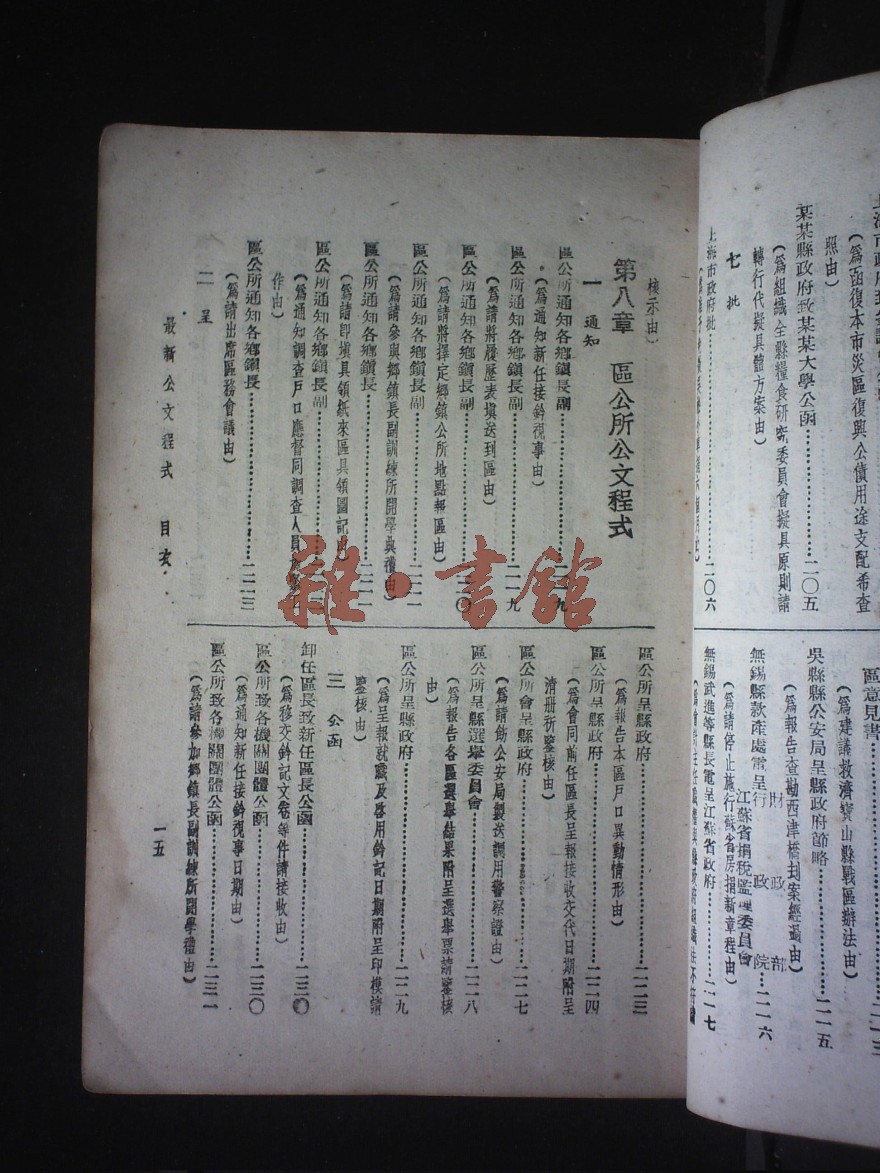 （爲函復本市災區復興公債用途支配希查
照由）
某某縣政府致某某大學公函……………二〇五
（爲組織全縣糧食研究委員會擬具原則請
轉行代擬具體方案由）
七　批
上海市政府批……………二〇六
區意見書……………
（爲建議救濟寶山縣戰區辦法由）
吳縣縣公安局呈縣政府節略……………二一五
（爲報告查勘西津橋刦案經過由）
財政部
無錫縣款產處電呈行政院……二一六
江蘇省捐稅監理委員會
（爲請停止施行蘇省房捐新章程由）
無錫武進等縣長電呈江蘇省政府……………二一七
核示由）
第八章　區公所公文程式
一　通知
區公所通知各鄉鎭長副……………九
（爲通知新任接鈐視事由）
區公所通知各鄉鎭長副……………二一九
（爲請將履歷表塡送到區由）
區公所通知各鄉鎭長副……………二二〇
（爲請將擇定鄉鎭公所地點報區由）
區公所通知各鄉鎭長副……………二二一
（爲請參與鄉鎭長副訓練所開學典禮由）
區公所通知各鄉鎭長……………二二一
（爲請卽塡具領紙來區具領圖記由）
區公所通知各鄉鎭長副……………
（爲通知調查戶口應督同調查人員
作由）
區公所通知各鄉鎭長……………二二三
（爲請出席區務會議由）
二　呈
區公所呈縣政府……………二二三
（爲報告本區戶口異動情形由）
區公所呈縣政府……………二二四
（爲會同前任區長呈報接收交代日期附呈
淸册祈鑒核由）
區公所會呈縣政府……………二二七
（爲請飭公安局製送調用警察證由）
區公所呈縣選舉委員會……………二二八
（爲報告各區選舉結果附呈選舉票請鑒核
由）
區公所呈縣政府……………二二九
（爲呈報就職及啓用鈐記日期附呈印模請
鑒核由）
三　公函
卸任區長致新任區長公函……………二三〇
（爲移交鈐記文卷等件請接收由）
區公所致各機關團體公函……………二三〇
（爲通知新任接鈐視事日期由）
區公所致各機關團體公函……………二三一
（爲請參加鄉鎭長副訓練所開學禮由）
最新公文程式　目次
一五
雜·書館